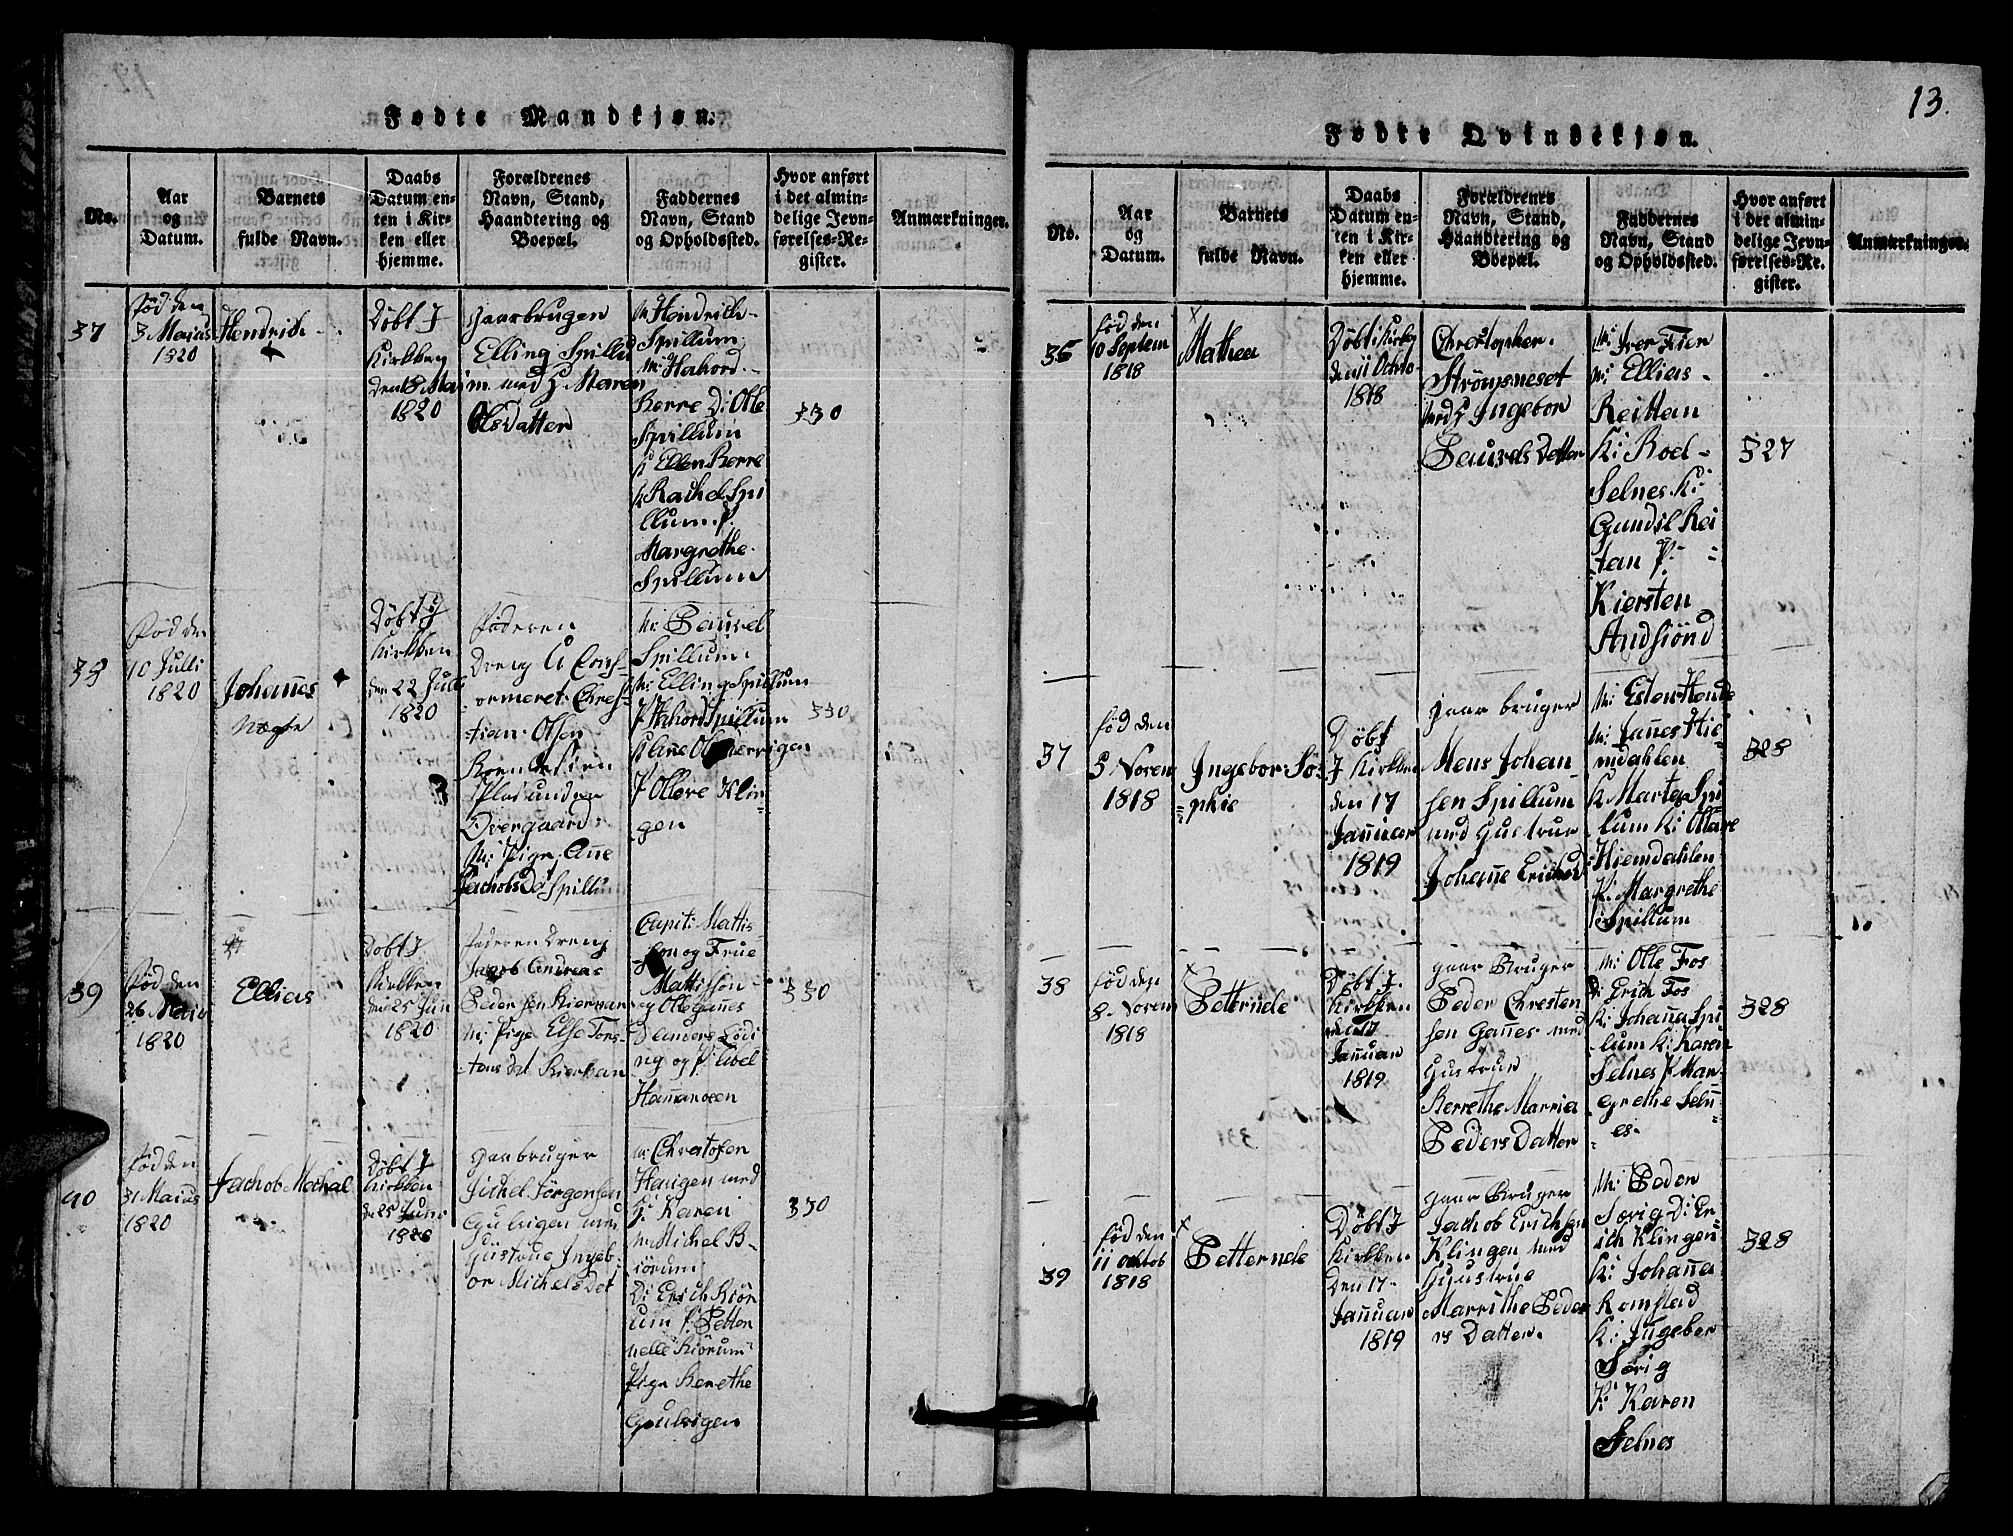 Fødte Mandkjøn.
No.
Aar
og
Datum.
Barnets
fulde Navn.
Daabs
Datum en-
ten i Kir-
ken eller
hjemme.
Forældrenes
Navn, Stand,
Haandtering og
Boepæl.
Faddernes
Navn, Stand
og Opholdssted.
Hvor anført
i det almin-
delige Jevn-
førelses-Re-
gister.
Anmærkninger.
37
Fød den
3 Maius
1820
Hendrich
Døbt J
Kirkben
den
1820
Gaarbrugen
Elling Spillu
m med H Maren
OlsDatter
M: Hendrich
Spillum
M: Hahord
Berre D: Olle
Spillum
K Ellen Berre
K Rachel Spi
llum. P.
Margrethe
Spillum
330
38
Fød den
10 Julli
1820
Johanes
Døbt J
Kirkben
den 22 Julli
1820
Føderen
Dreng U Conf-
ormeret Chres-
tian Olsen
Plas under
Overgaard
M: Pige Ane
Jachobs D: Spillum
M: Paurel
Spillum
M: Elling Spillum
P Hahord Spillum
P Ollove Klin-
gen
330
39
Fød den
26 Maius
1820
Ellias
Døbt J
Kirkben
den 25 Juni
1820
Faderen Dreng
Jacob Andreas
Pedersen Kierran
M: Pige Else Tors-
tens dat Kierran
Capit: Mattis-
son og Frue
Mattisson
og Olle Ganes
ng og P: Abel
330
40
Fød den
31 Maius
1820
Jachob Mechal
Døbt J
Kirkben
den 25 Juni
1820
Gaarbruger
Michel Jørgensen
Gulvigen med
Gustrue Ingeb-
or Michels Dat
M: Chrestofen
Haugen med
K: Karen
M: Michel B-
iørum
D: Erich Kiør
um P: Petter
nelle Kiørum
Pige Berethe
Gulvigen
330
13.
Fødte Qvindekjøn.
No.
Aar
og
Datum.
Barnets
fulde Navn.
Daabs
Datum en-
ten i Kir-
ken eller
hjemme.
Forældrenes
Navn, Stand,
Haandtering og
Boepæl.
Faddernes
Navn, Stand
og Opholdssted.
Hvor anført
i det almin-
delige Jevn-
førelses-Re-
gister.
Anmærkninger.
36
Fød den
10 Septem
1818
Mathea
Døbt i Kirken
den 11 Octo
1818
Chrestopher
Strømsneset
med H Ingebor
Paurels Datter
M: Iver Fier
M: Ellias
Reittan
K: Roel
Selnes K:
Gundil Rei
tan P:
Kiersten
Andsiønd
327
37
Fød den
5 Novem
1818
Ingebor Sø-
phie
Døbt
J Kirkben
den 17
Januar
1819
Gaar bruger
Mens Johan-
sen Spillum
med Gustrue
Johane Erichsd
M: Esten Hende
M: Janes Hie-
mdahlen
K Marta Spi
lum K: Ollave
Hiemdahlen
K: Margrethe
Spillum
328
38
Fød den
8. Novem
1818
Petternele
Døbt J
Kirkben
den 17
Januar
1819
Gaar Bruger
Peder Chresten
sen Ganes med
Gustrue
Berrethe Marria
Peders Datter
M: Olle Fos
D: Erich Fos
K: Johana Spi
lum K: Karen
Selnes P Mar-
grethe Seln
es
328
39
Fød den
11 October
1818
Petternele
Døbt J
Kirkben
Den 17
Januar
1819
Gaar Bruger
Jachob Erichsen
Klingen med
Gustrue
Marrithe Peder
rs Datter.
M: Peder
Sørig D: Er-
ich Klingen
K: Johana
Romstad
K: Ingebor
Sørig
K: Karen
Selnes
328